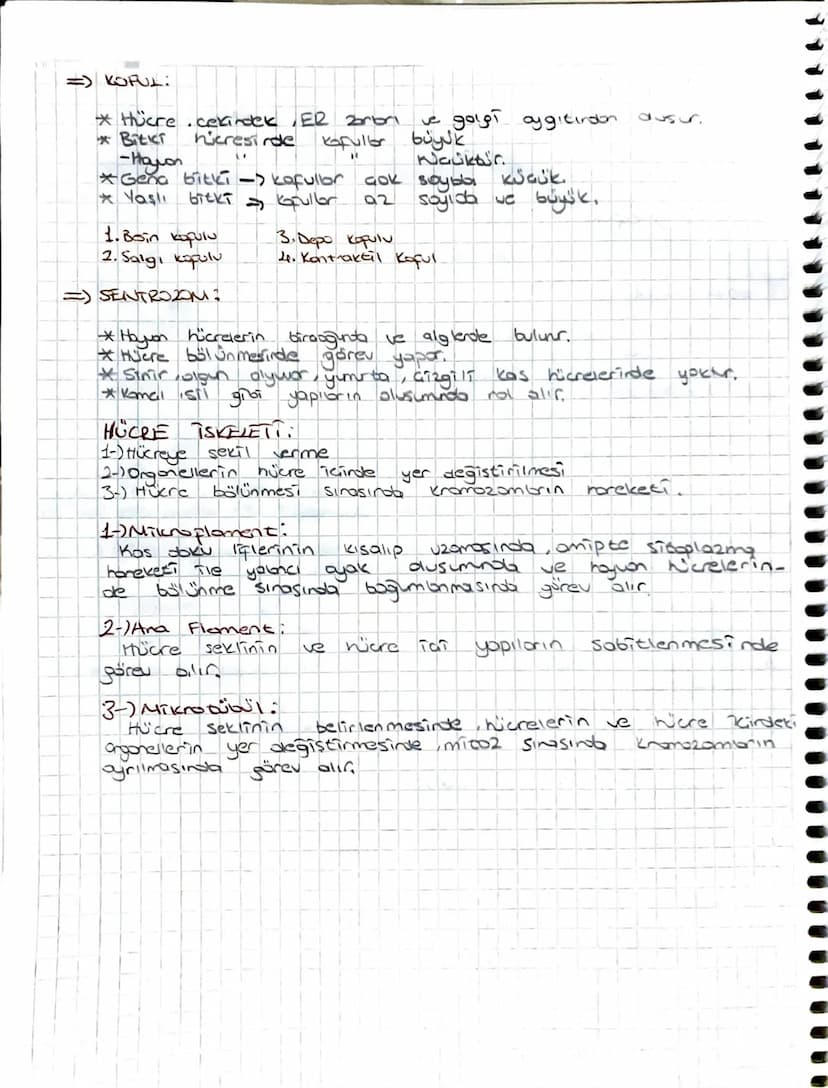 => KOFUL:
* Hücre, çekirdek, ER zarları ve golgi aygıtından oluşur.
* Bitki hücresinde kofullar büyük
-Hayvan " " küçüktür.
* Genç bitki -> kofullar çok sayıda küçük.
* Yaşlı bitki => kofullar az sayıda ve büyük.
1. Besin kofulu 3. Depo kofulu
2. Salgı kofulu 4. Kontraktil koful
=> SENTROZOM:
* Hayvan hücrelerin birçoğunda ve alglerde bulunr.
* Hücre bölünmesinde görev yapar.
* Sinir, olgun alyuvar, yumurta, çizgili kas hücrelerinde yoktur.
* Kamçı, sil gibi yapıların oluşumunda rol alır.
HÜCRE İSKELETİ:
1-) Hücreye şekil verme
2-) Organellerin hücre içinde yer değiştirilmesi
3-) Hücre bölünmesi sırasında kromozomların hareketi.
1-) Mikroflament:
Kas doku liflerinin kısalıp uzamasında, amipte sitoplazma
hareketi ile yalancı ayak oluşumunda ve hayvan hücrelerin-
de bölünme sırasında boğumlanmasında görev alır.
2-) Ara Flament:
Hücre şeklinin ve hücre içi yapıların sabitlenmesinde
görev alır.
3-) Mikrotübül:
Hücre şeklinin belirlenmesinde, hücrelerin ve hücre içindeki
organellerin yer değiştirmesinde, mitoz sırasında kromozomların
ayrılmasında görev alır.